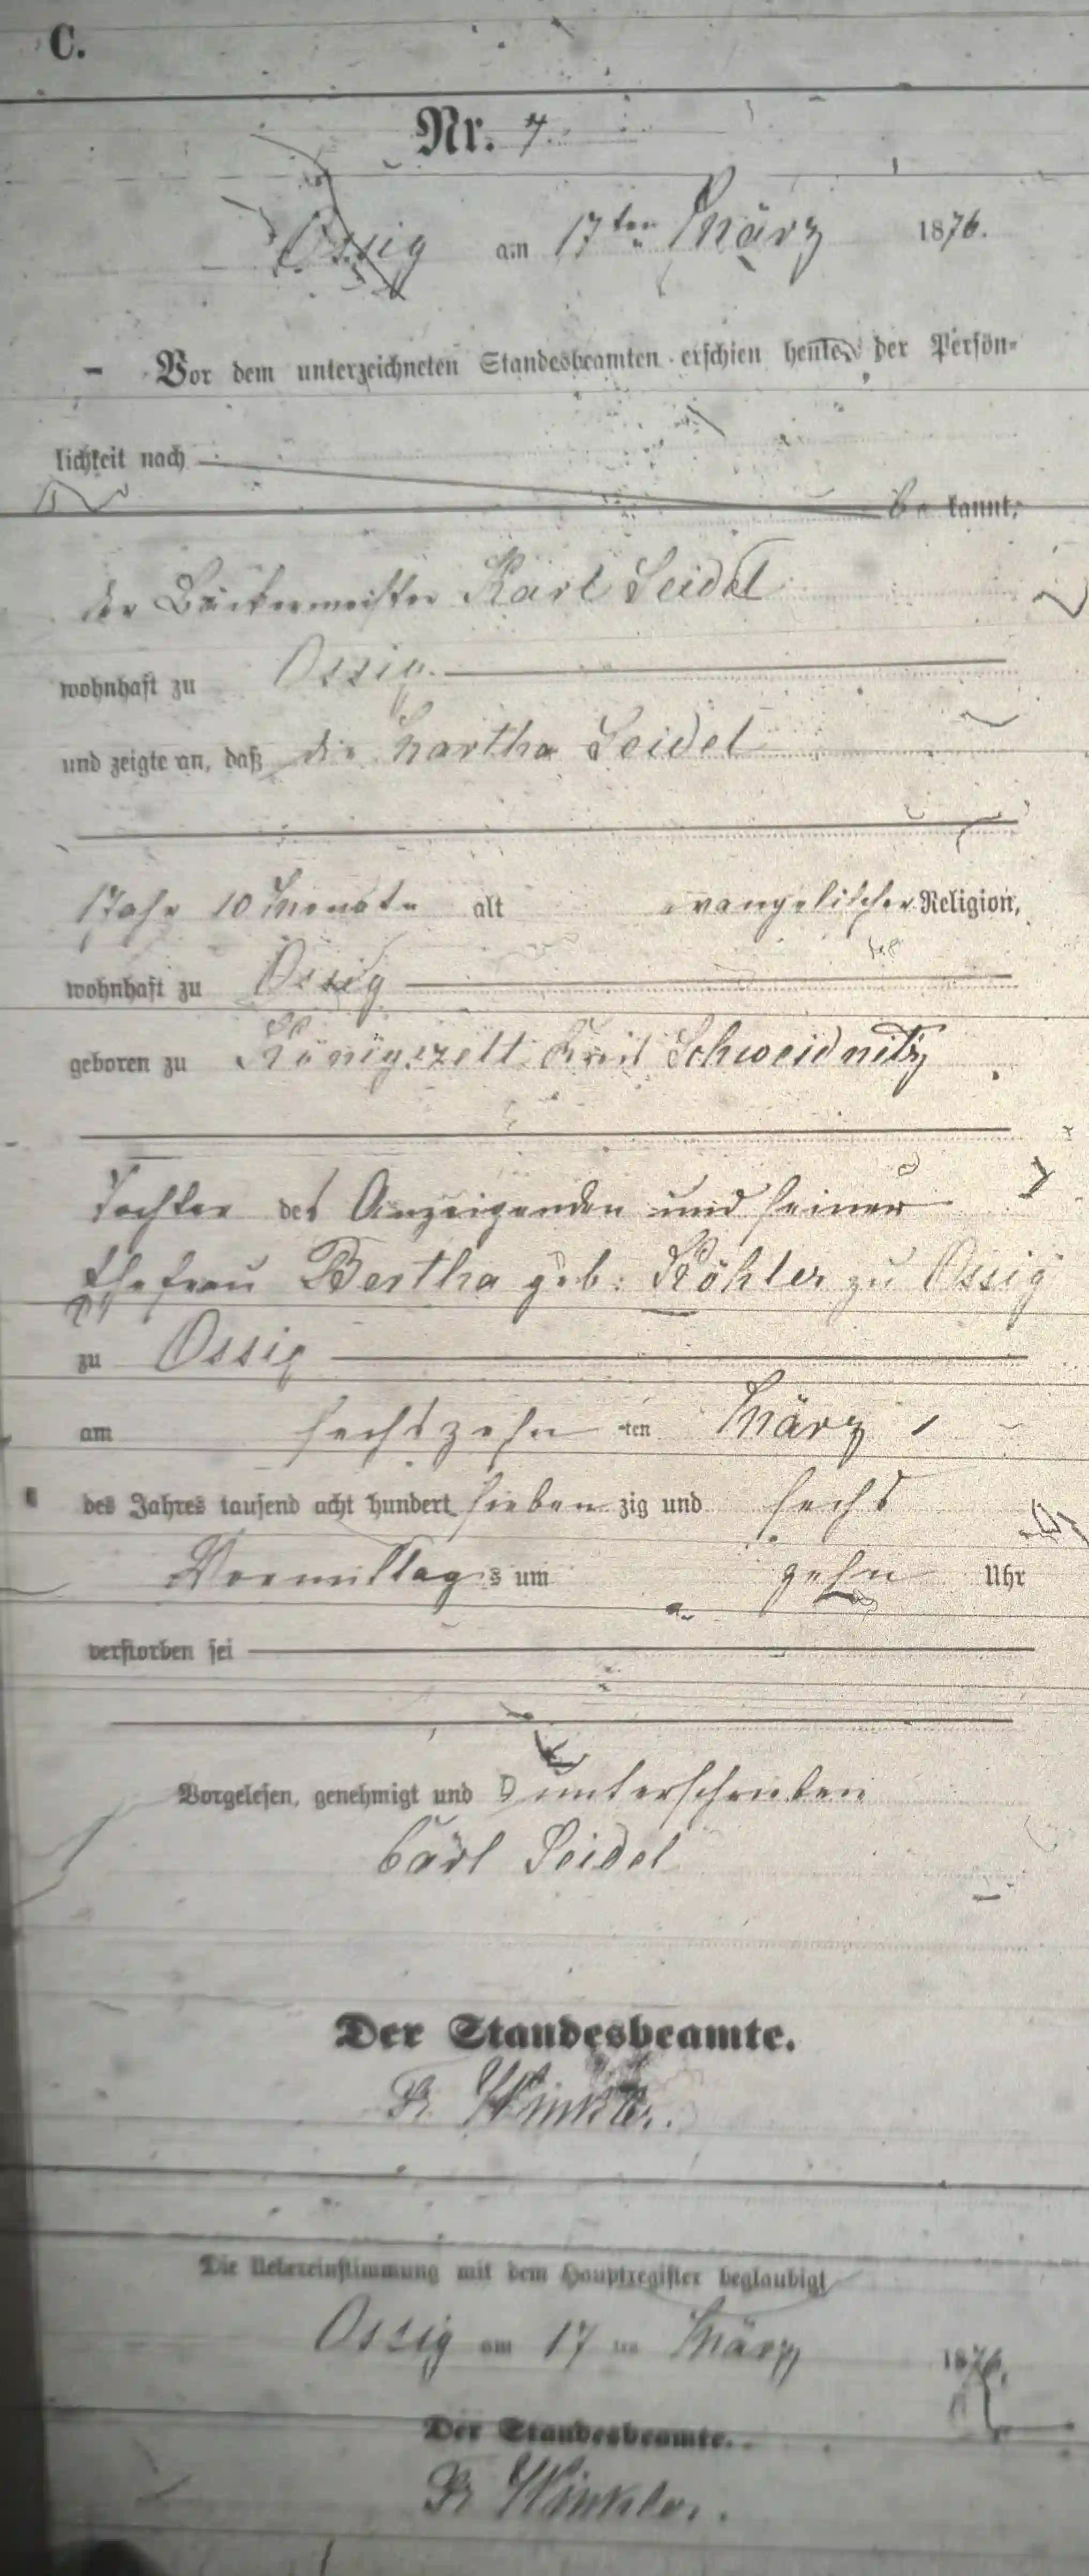 C.
Nr. 7.
Ossig am 17ten März 1876.
Vor dem unterzeichneten Standesbeamten erschien heute, der Persön-
lichkeit nach
be kannt,
der Bäckermeister Karl Seidel
wohnhaft zu Ossig.
und zeigte an, daß die Martha Seidel
1 Jahr 10 Monate alt evangelischer Religion,
wohnhaft zu Ossig
geboren zu Königszelt Kreis Schweidnitz
Tochter des Anzeigenden und seiner
Ehefrau Bertha geb. Köhler zu Ossig
zu Ossig
am sechszehn ten März
des Jahres tausend acht hundert sieben zig und sechs
Vormittag s um zehn Uhr
verstorben sei
Vorgelesen, genehmigt und unterschrieben
Carl Seidel
Der Standesbeamte.
Winkler.
Die Uebereinstimmung mit dem Hauptregister beglaubigt
Ossig am 17 ten März 1876.
Der Standesbeamte.
Winkler.